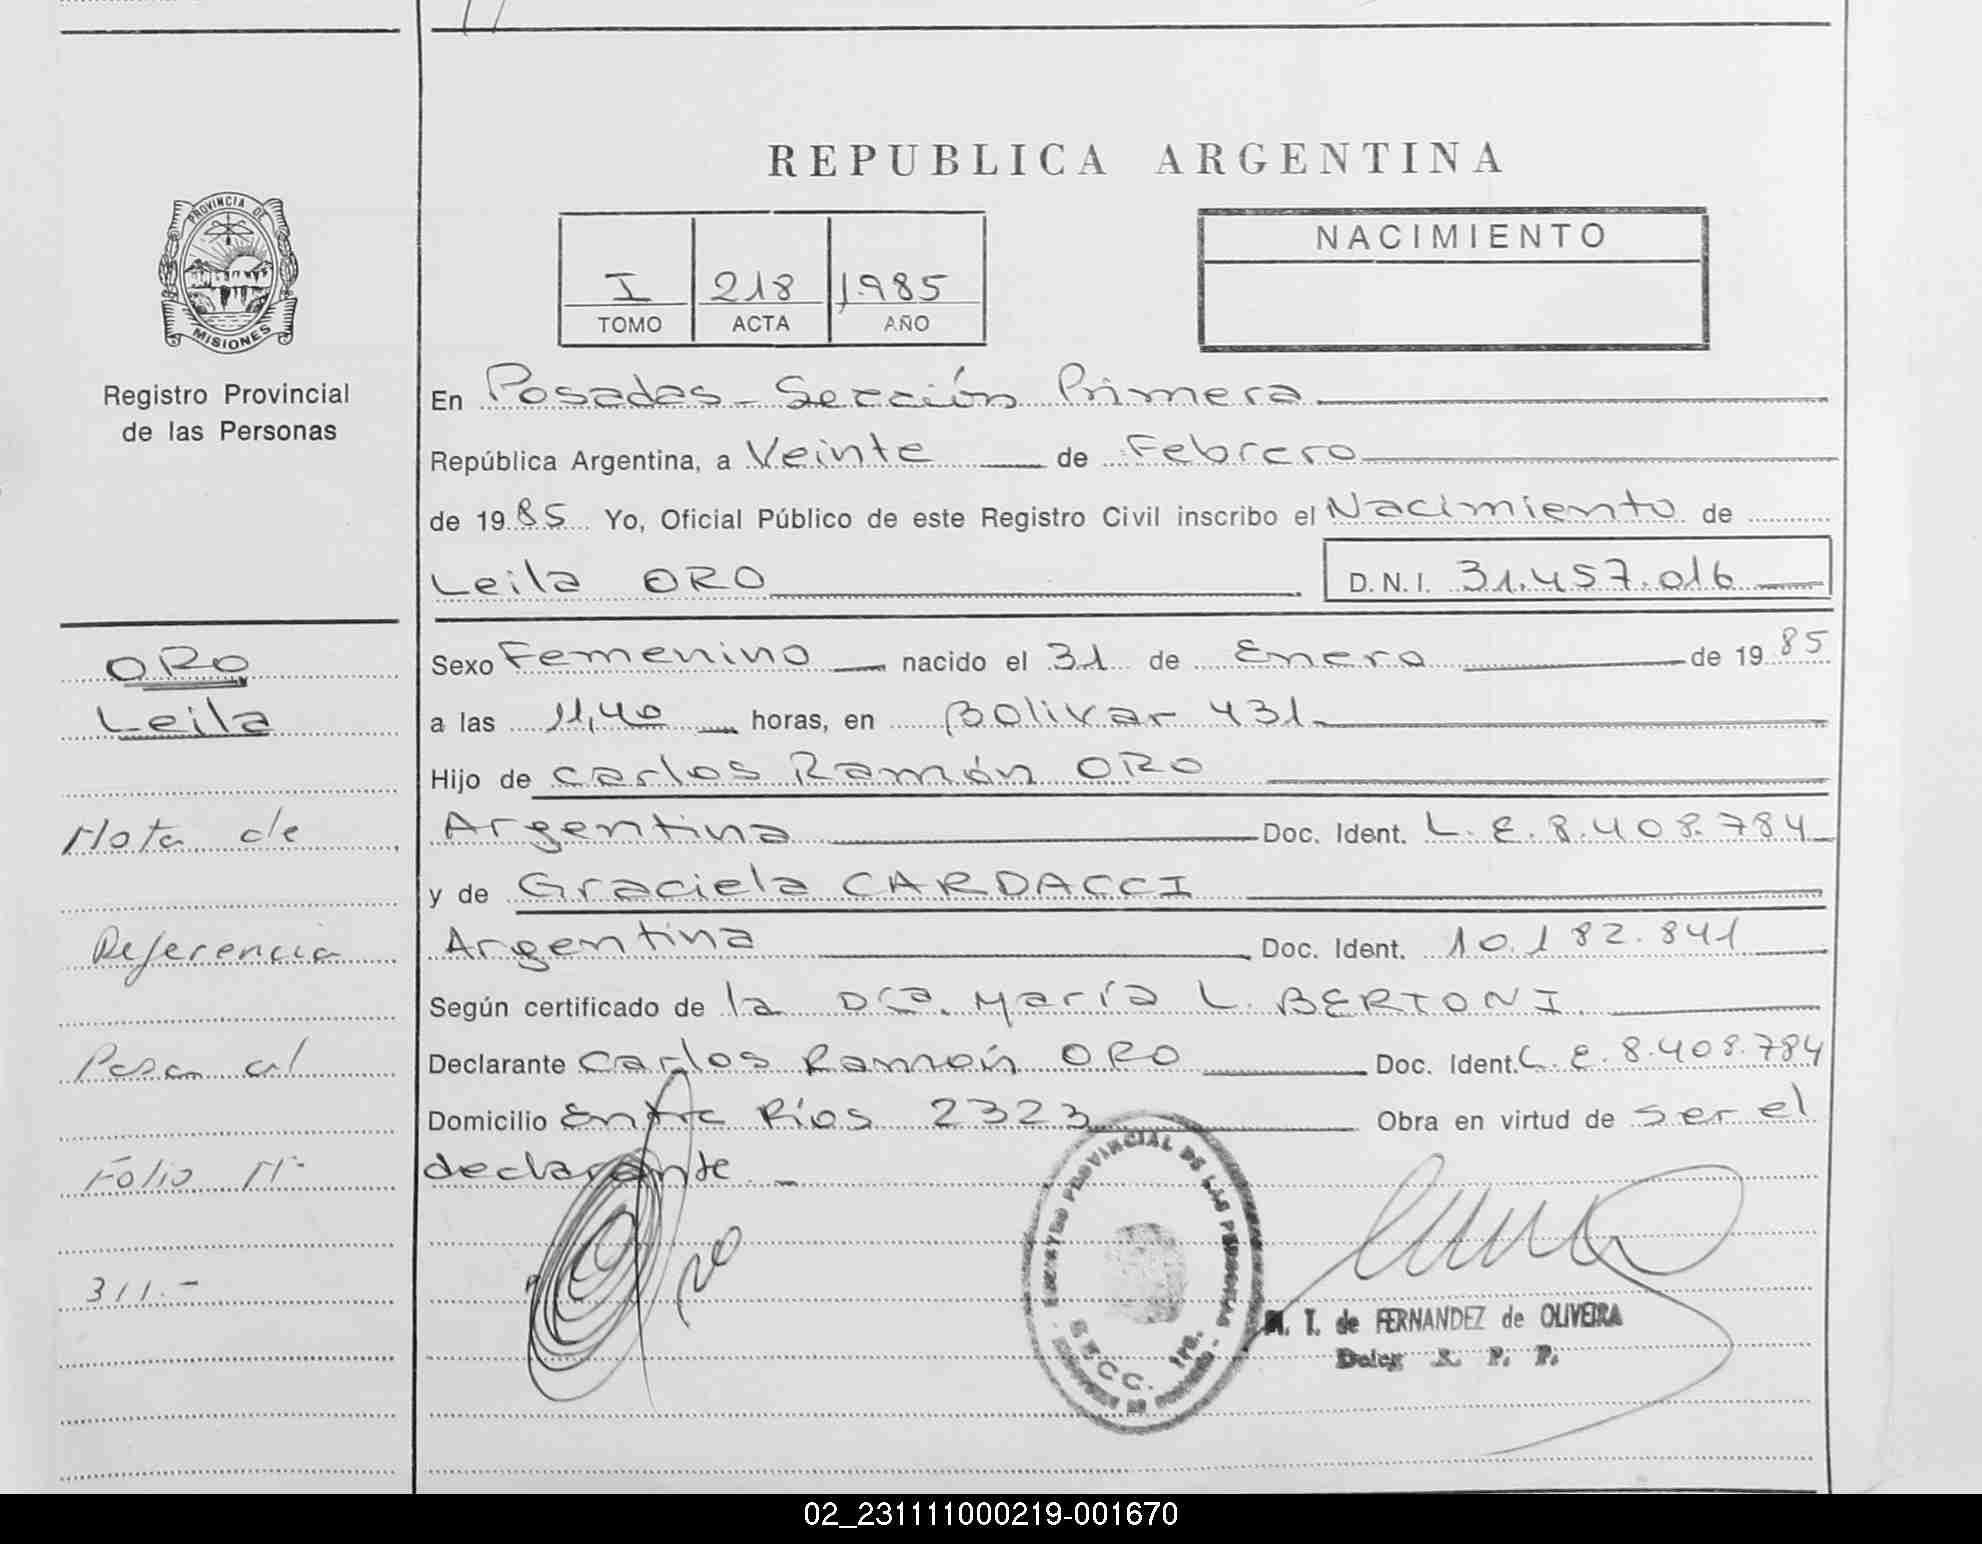 REPUBLICA ARGENTINA
PROVINCIA DE
MISIONES
Registro Provincial
de las Personas
I 218 1985
TOMO ACTA AÑO
NACIMIENTO
En Posadas - Sección Primera
República Argentina, a Veinte de Febrero
de 1985 Yo, Oficial Público de este Registro Civil inscribo el Nacimiento de
Leila ORO D.N.I. 31.457.016
ORO
Leila
Nota de
Referencia
Pasa al
Folio Nº
311.-
Sexo Femenino nacido el 31 de Enero de 1985
a las 11,40 horas, en Bolivar 431
Hijo de Carlos Ramón ORO
Argentina Doc. Ident. L.E. 8.408.784
y de Graciela CARDACCI
Argentina Doc. Ident. 10.182.841
Según certificado de la Dra. María L. BERTONI
Declarante Carlos Ramón ORO Doc. Ident. L.E. 8.408.784
Domicilio Entre Ríos 2323 Obra en virtud de ser el
declarante. -
REGISTRO PROVINCIAL DE LAS PERSONAS
SECC. 1ra.
M. T. de FERNANDEZ de OLIVEIRA
Deleg. R. P. P.
02_231111000219-001670